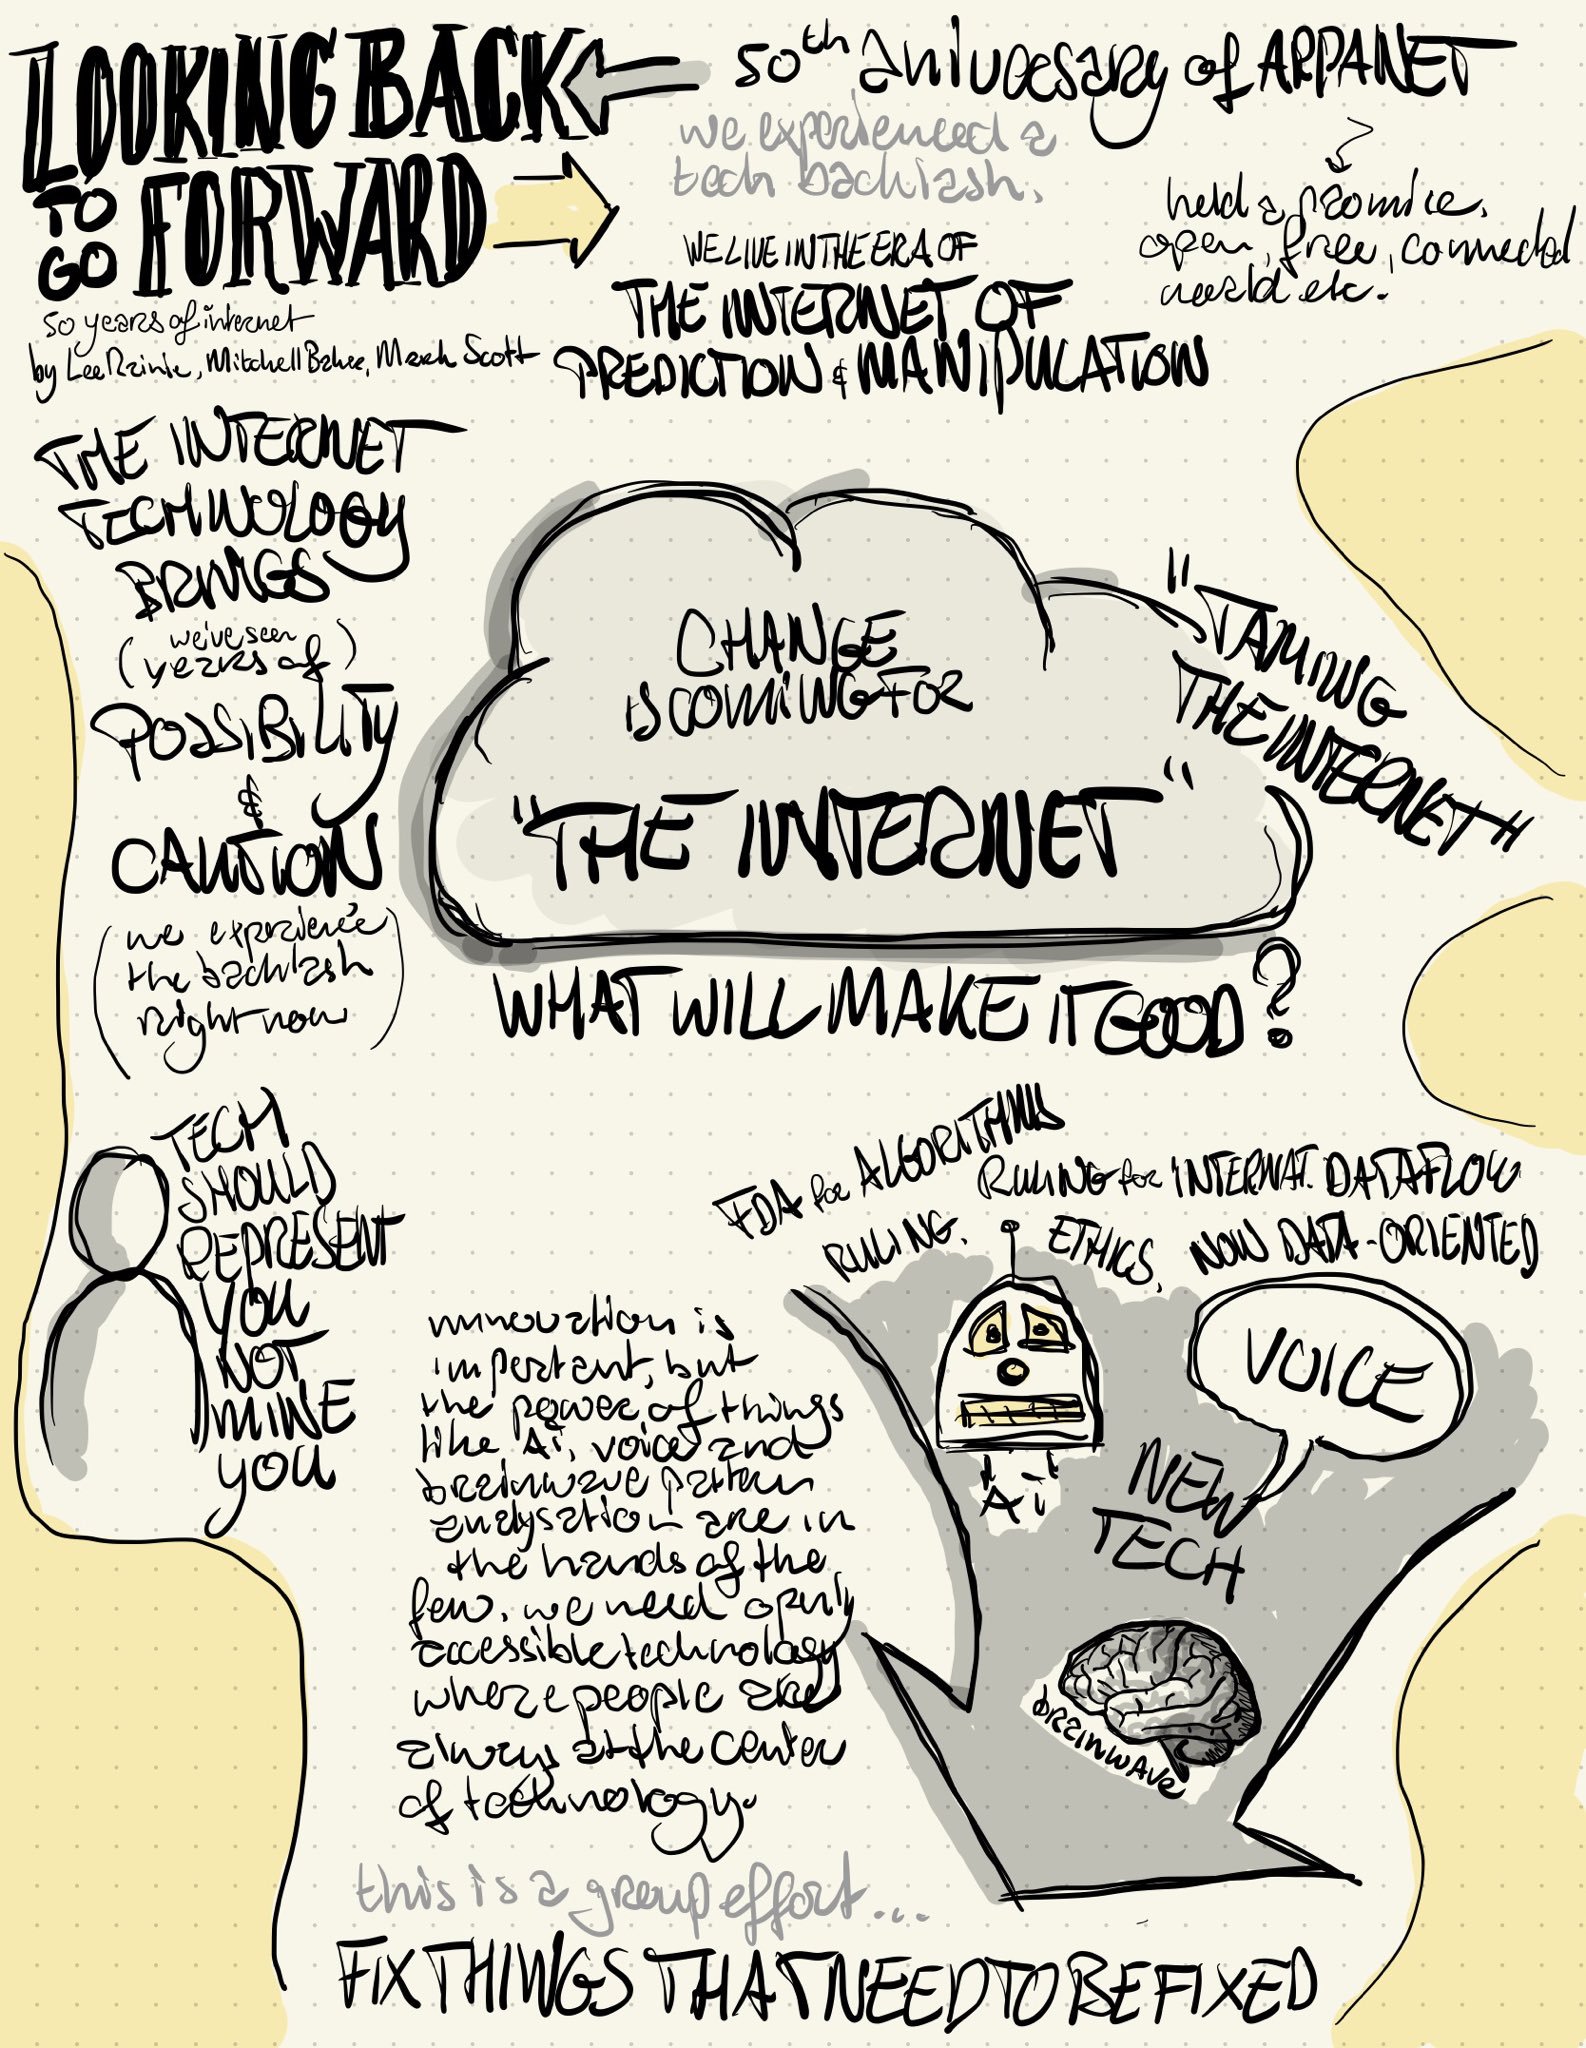 LOOKING BACK
TO GO FORWARD
50 years of internet
by Lee Rainie, Mitchell Baker, Mark Scott
50th aniversary of ARPANET
we experienced a
tech backlash.
held a promice.
open, free, connected
world etc.
WE LIVE IN THE ERA OF
THE INTERNET OF
PREDICTION & MANIPULATION
THE INTERNET
TECHNOLOGY
BRINGS
(we've seen
years of)
POSSIBILITY
&
CAUTION
(we experience
the backlash
right now)
CHANGE
IS COMING FOR
"THE INTERNET"
"TAMING
THE INTERNET"
WHAT WILL MAKE IT GOOD?
TECH
SHOULD
REPRESENT
YOU
NOT
MINE
YOU
FDA for ALGORITHMS
RULING.
RULING for INTERNAT. DATAFLOW
ETHICS, NOW DATA-ORIENTED
innovation is
important, but
the power of things
like Ai, voice and
brainwave pattern
analysation are in
the hands of the
few. we need openly
accessible technology
where people are
always at the center
of technology.
Ai
VOICE
NEW
TECH
brainwave
this is a group effort...
FIX THINGS THAT NEED TO BE FIXED